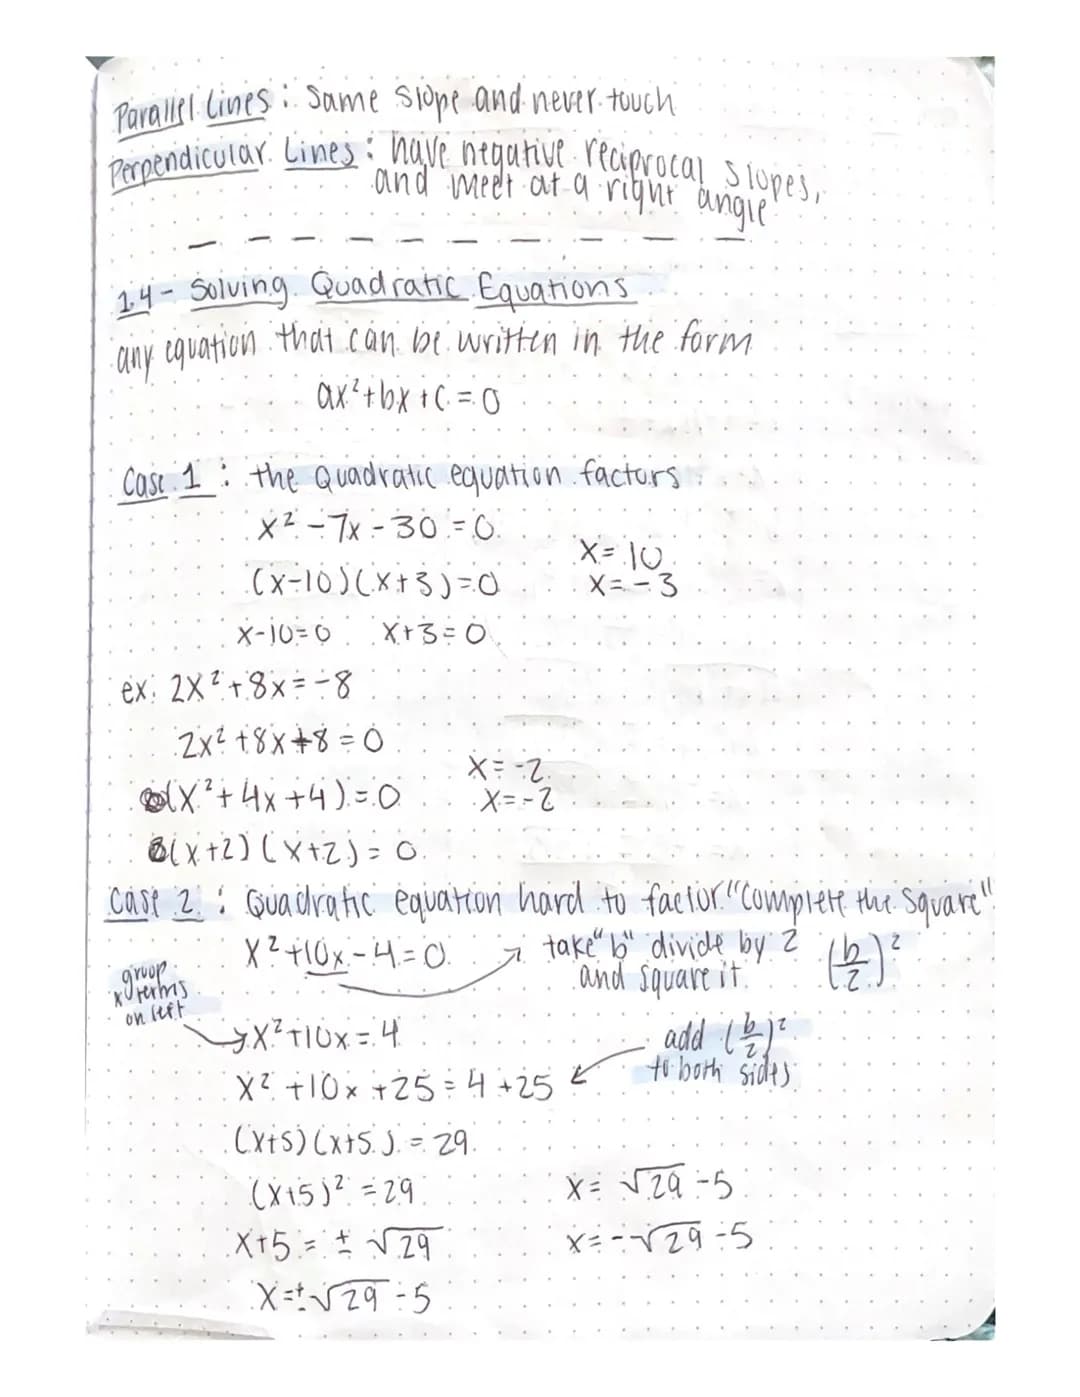 Parallel Lines: Same slope and never touch
Perpendicular Lines: have negative reciprocal slopes,
and meet at a right angle
1.4 - Solving Quadratic Equations
any equation that can be written in the form
ax²+bx+c=0
Case 1: the Quadratic equation factors
x²-7x-30=0
(x-10)(x+3)=0
x=10
x=-3
x-10=0 x+3=0
ex: 2x²+8x=-8
2x²+8x+8=0
(x²+4x+4)=0
x=-2
x=-2
(x+2)(x+2)=0
Case 2: Quadratic equation hard to factor "Complete the Square"
x²+10x-4=0
take "b" divide by 2
and square it
(b/2)²
group
x terms
on left
x²+10x=4
add (b/2)²
to both sides
x²+10x+25=4+25
(x+5)(x+5)=29
(x+5)²=29
x=√29-5
x+5=±√29
x=-√29-5
x=±√29-5